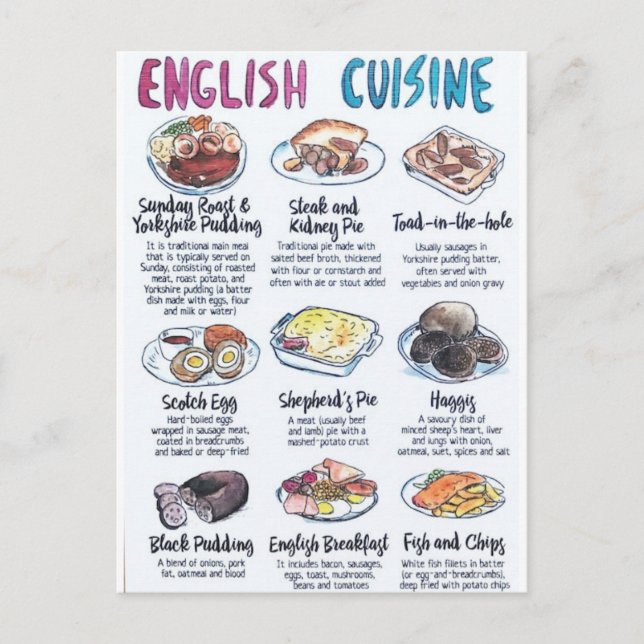 ENGLISH CUISINE
Sunday Roast &
Yorkshire Pudding
It is traditional main meal
that is typically served on
Sunday, consisting of roasted
meat, roast potato, and
Yorkshire pudding (a batter
dish made with eggs, flour
and milk or water)
Steak and
Kidney Pie
Traditional pie made with
salted beef broth, thickened
with flour or cornstarch and
often with ale or stout added
Toad-in-the-hole
Usually sausages in
Yorkshire pudding batter,
often served with
vegetables and onion gravy
Scotch Egg
Hard-boiled eggs
wrapped in sausage meat,
coated in breadcrumbs
and baked or deep-fried
Shepherd's Pie
A meat (usually beef
and lamb) pie with a
mashed-potato crust
Haggis
A savoury dish of
minced sheep's heart, liver
and lungs with onion,
oatmeal, suet, spices and salt
Black Pudding
A blend of onions, pork
fat, oatmeal and blood
English Breakfast
It includes bacon, sausages,
eggs, toast, mushrooms,
beans and tomatoes
Fish and Chips
White fish fillets in batter
(or egg-and-breadcrumbs),
deep fried with potato chips